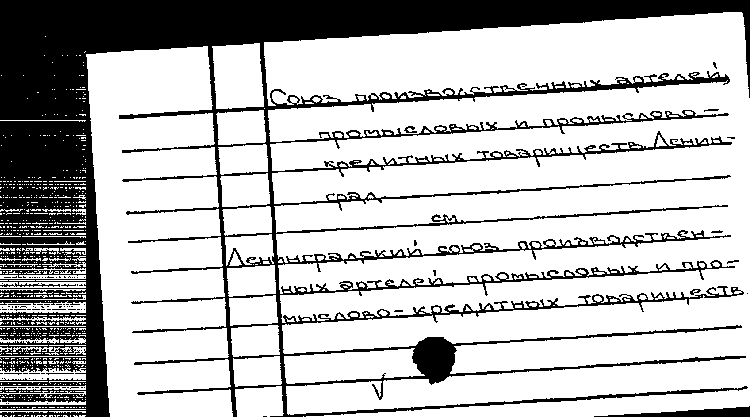 Союз производственных артелей,
промысловых и промыслово-
кредитных товариществ. Ленин-
град.
см.
Ленинградский союз производствен-
ных артелей, промысловых и про-
мыслово-кредитных товариществ